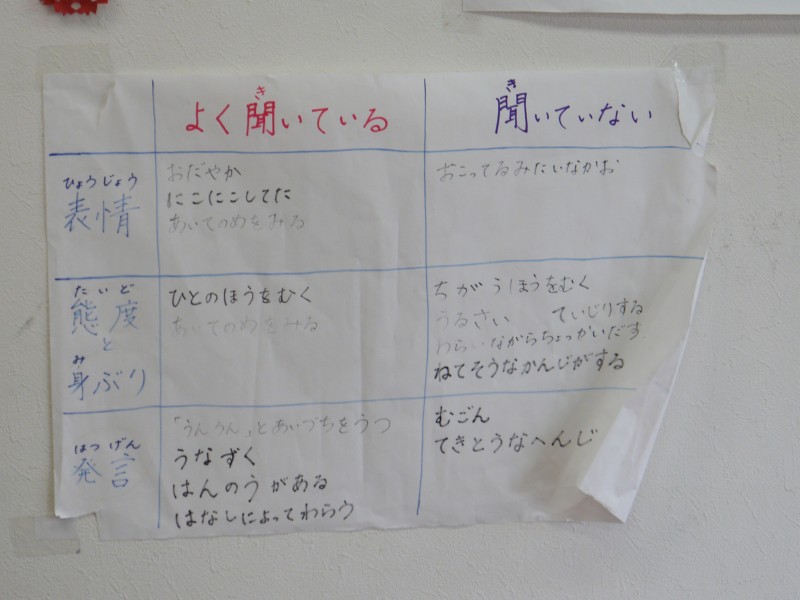 よく聞いている
き
聞いていない
き
ひょうじょう
表情
おだやか
にこにこしてた
あいてのめをみる
おこってるみたいなかお
たいど
態度
と
み
身ぶり
ひとのほうをむく
あいてのめをみる
ちがうほうをむく
うるさい ていじりする
わらいながらちょっかいだす
ねてそうなかんじがする
はつげん
発言
「うんうん」とあいづちをうつ
うなずく
はんのうがある
はなしによってわらう
むごん
てきとうなへんじ